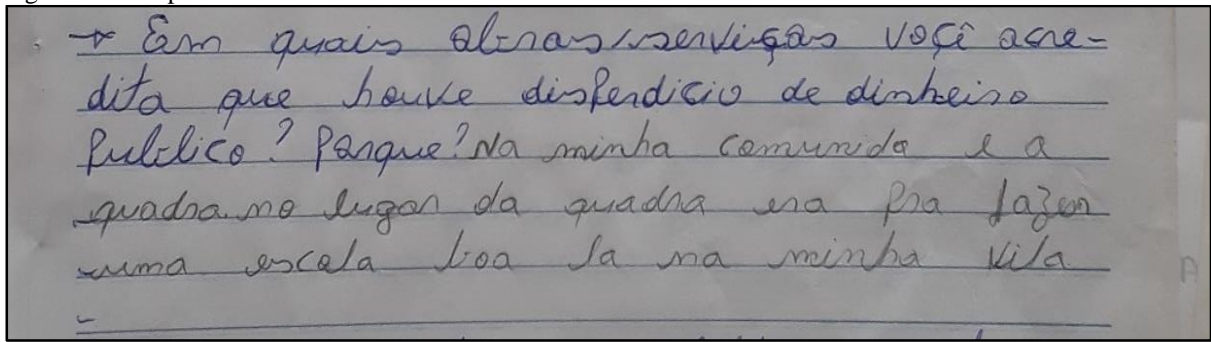 → Em quais obras/serviços você acre-
dita que houve disperdicio de dinheiro
Publico? Porque? Na minha comunida e a
quadra no lugar da quadra era pra fazer
uma escola boa la na minha vila